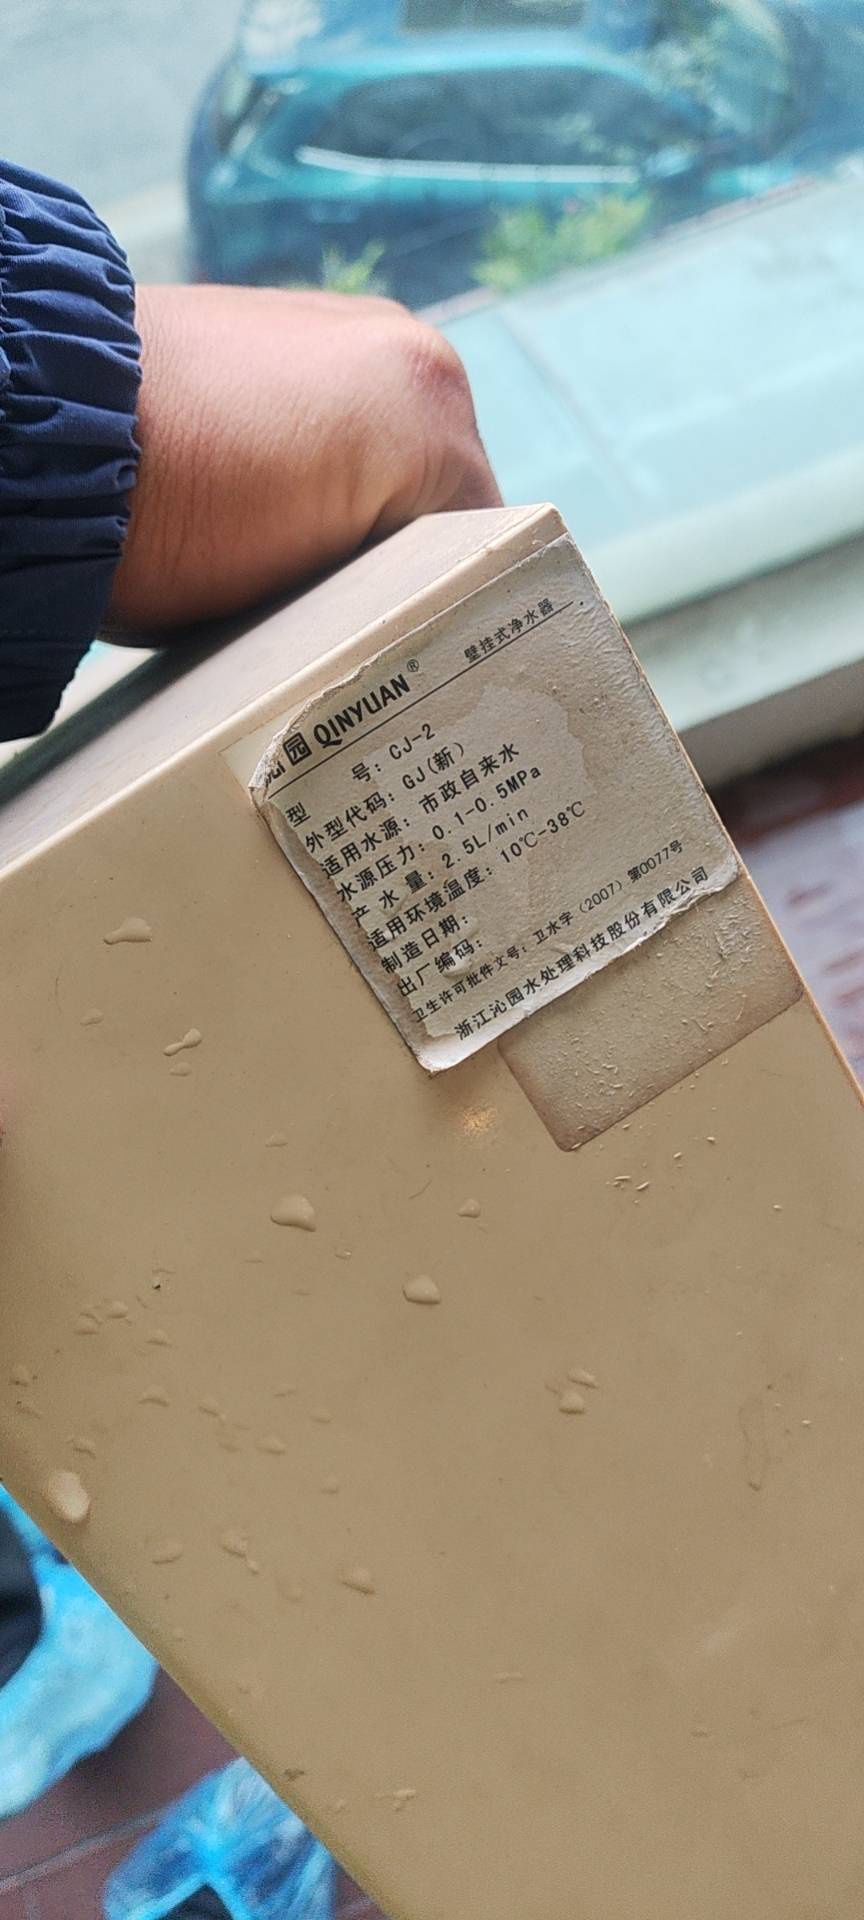 沁园 QINYUAN® 壁挂式净水器
型 号: CJ-2
外型代码: GJ(新)
适用水源: 市政自来水
水源压力: 0.1-0.5MPa
产 水 量: 2.5L/min
适用环境温度: 10℃-38℃
制造日期:
出厂编码:
卫生许可批件文号: 卫水字 (2007) 第0077号
浙江沁园水处理科技股份有限公司